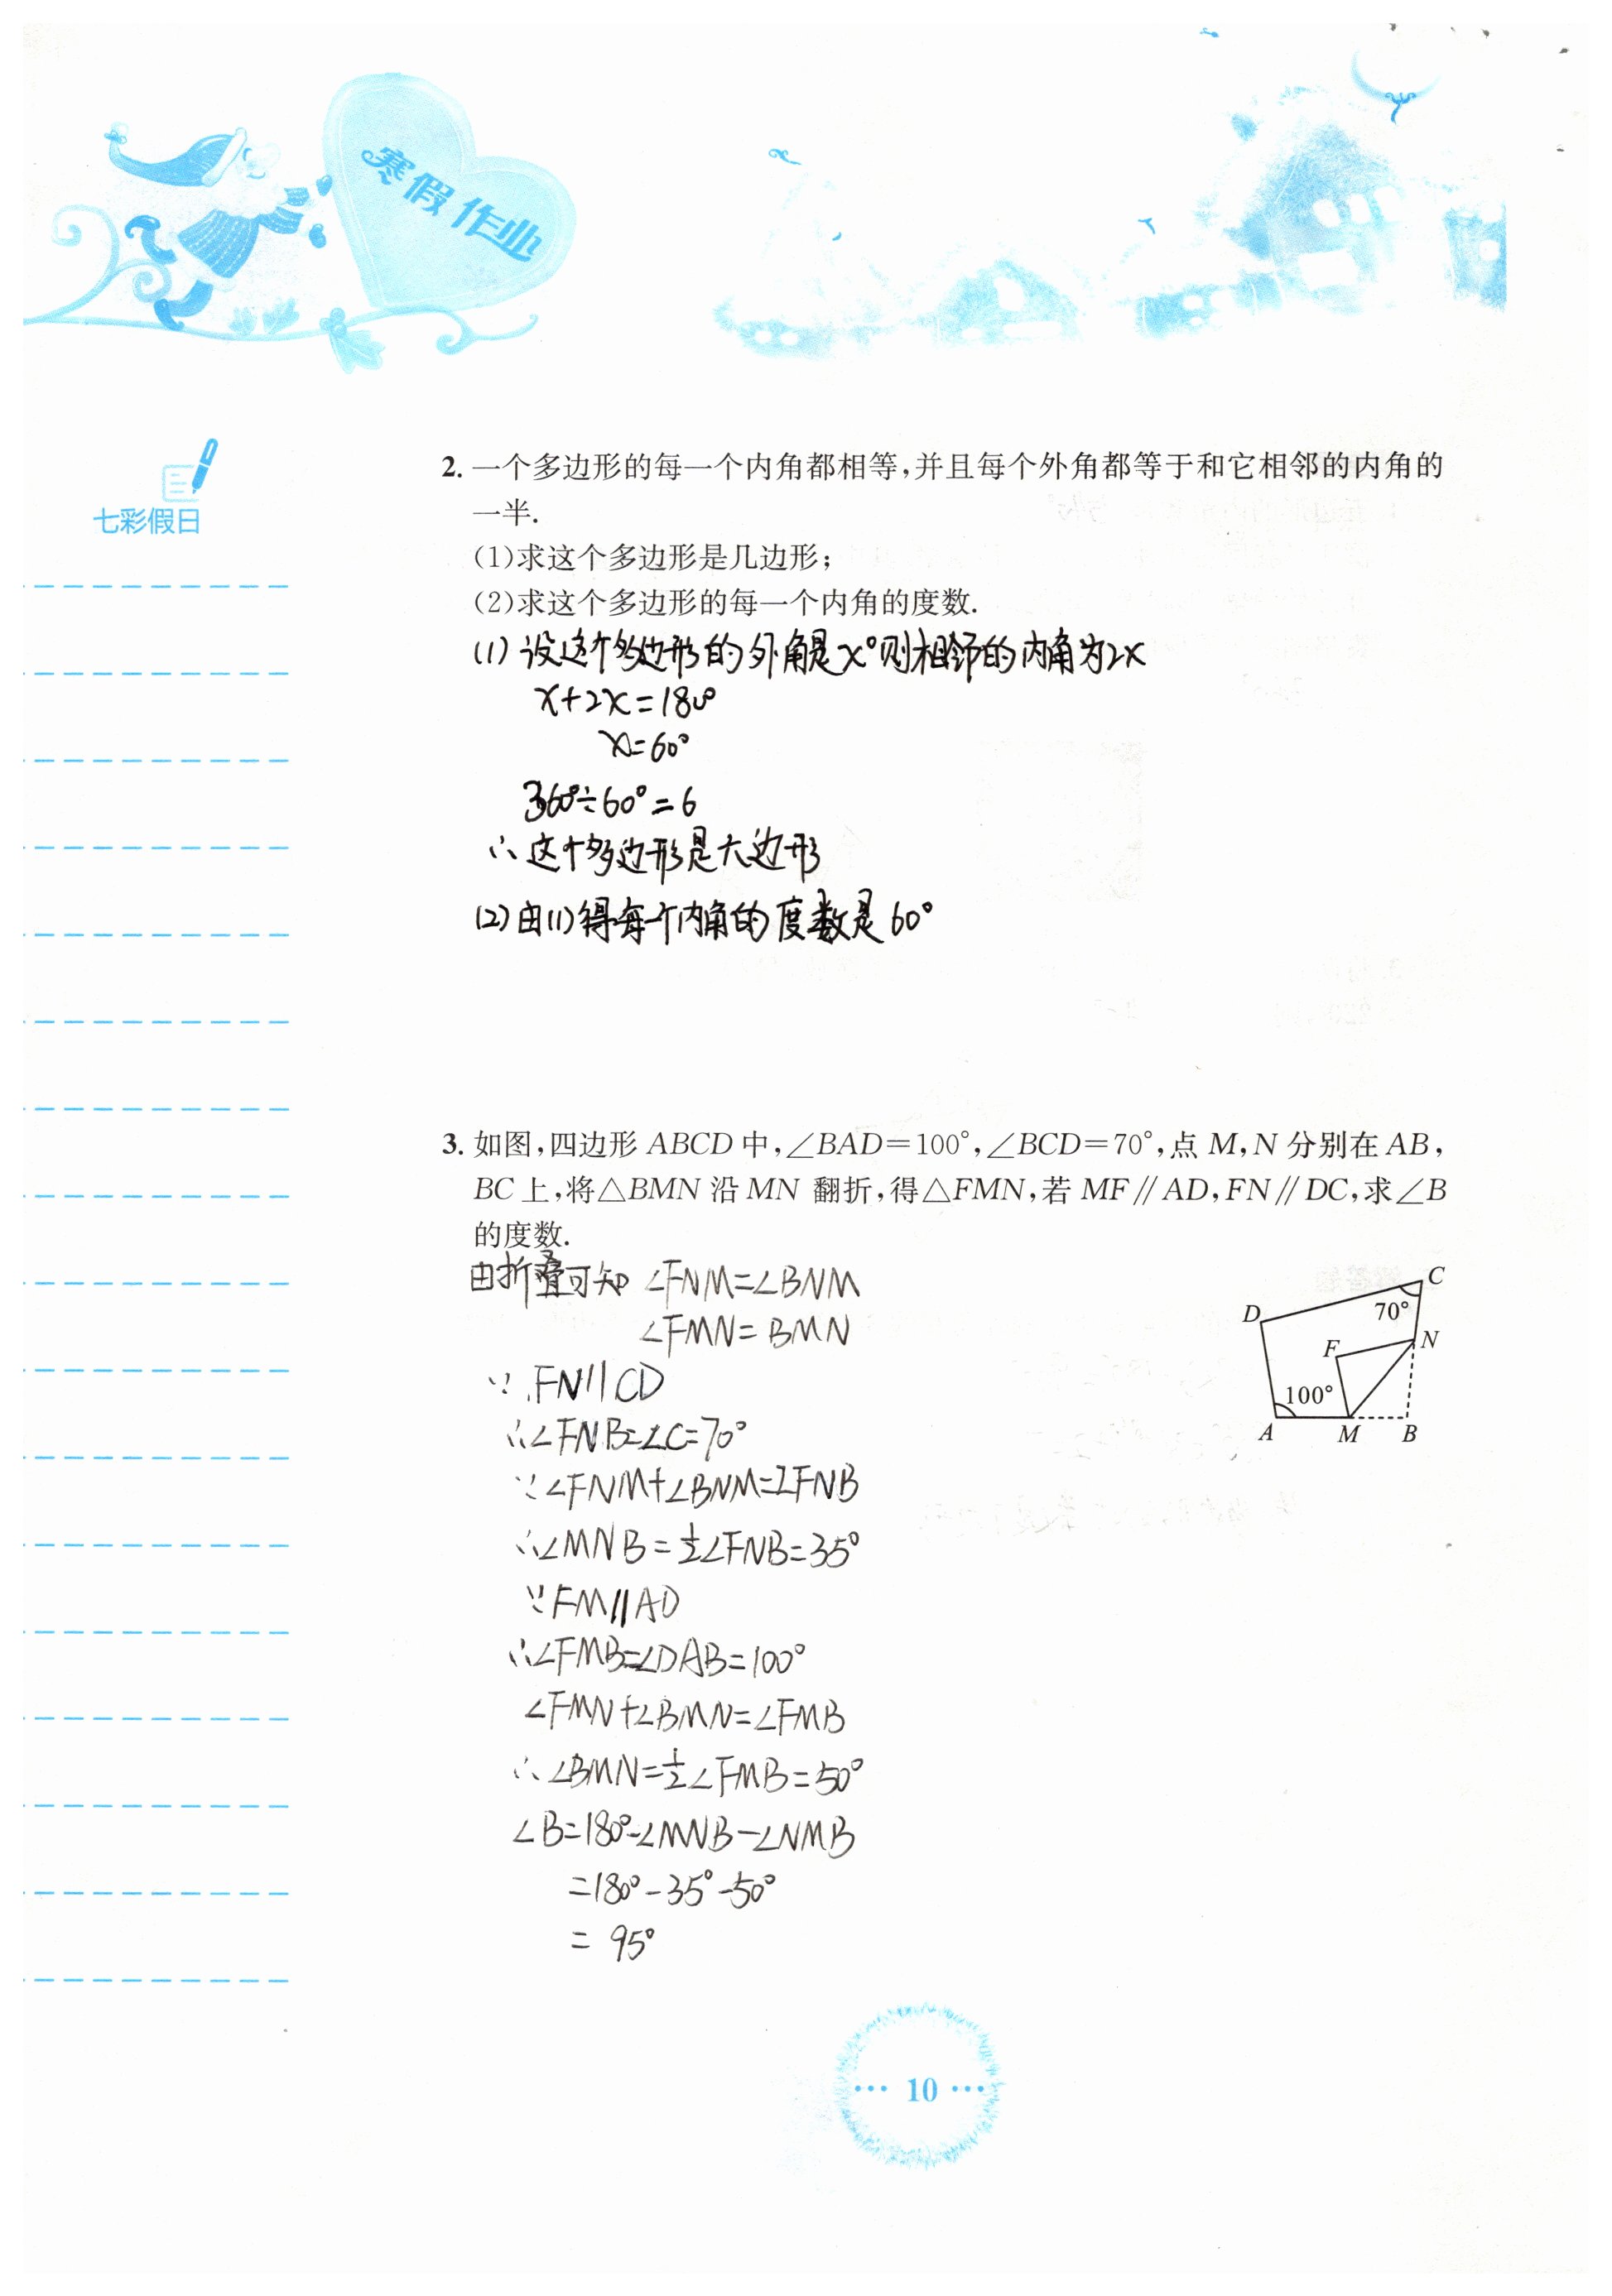 寒假作业
七彩假日
2. 一个多边形的每一个内角都相等,并且每个外角都等于和它相邻的内角的
一半.
(1)求这个多边形是几边形;
(2)求这个多边形的每一个内角的度数.
(1) 设这个多边形的外角是x°则相邻的内角为2x
x+2x=180°
x=60°
360°÷60°=6
∴ 这个多边形是六边形
(2) 由(1)得每个内角的度数是60°
3. 如图,四边形 ABCD 中,∠BAD=100°,∠BCD=70°,点 M,N 分别在 AB,
BC 上,将△BMN 沿 MN 翻折,得△FMN,若 MF∥AD,FN∥DC,求∠B
的度数.
由折叠可知 ∠FNM=∠BNM
∠FMN=BMN
∵ FN∥CD
∴∠FNB=∠C=70°
∵∠FNM+∠BNM=∠FNB
∴∠MNB=½∠FNB=35°
∵FM∥AD
∴∠FMB=∠DAB=100°
∠FMN+∠BMN=∠FMB
∴∠BMN=½∠FMB=50°
∠B=180°-∠MNB-∠NMB
=180°-35°-50°
= 95°
C
D
70°
F
N
100°
A M B
··· 10 ···